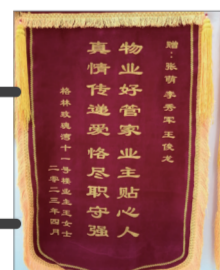 赠：张萌 李秀军 王俊龙
物业好管家 业主贴心人
真情传递爱 恪尽职守强
格林玫瑰湾十一号楼业主王女士
二零二三年四月